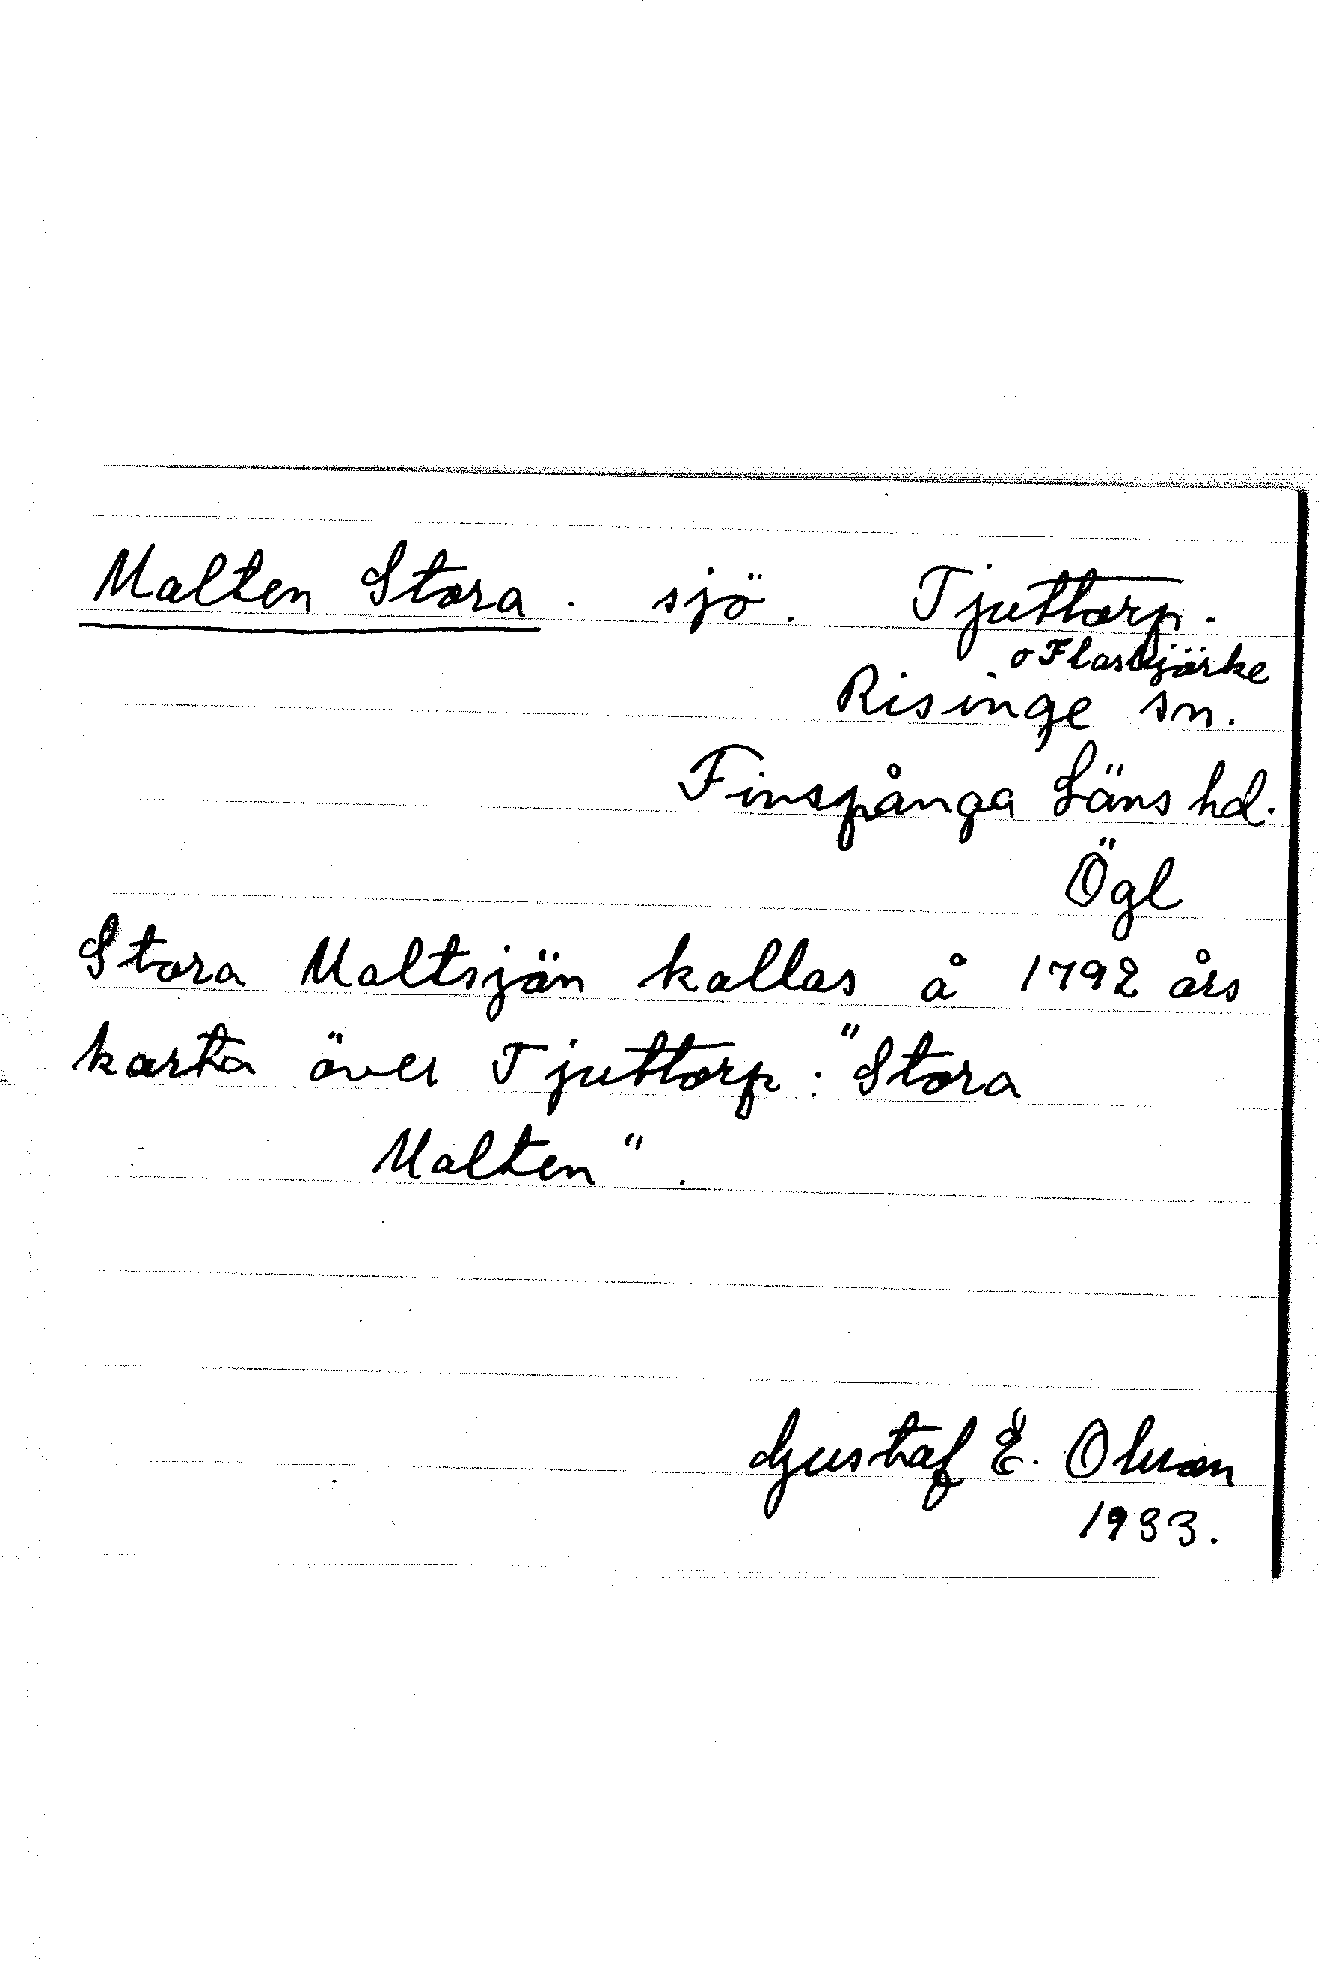 Malten Stora. sjö. Tjuttorp.
o Flarkjärke
Risinge sn.
Finspånga Läns hd.
Ögl
Stora Maltsjön kallas å 1792 års
karta över Tjuttorp: "Stora
Malten".
Gustaf E. Olsson
1933.